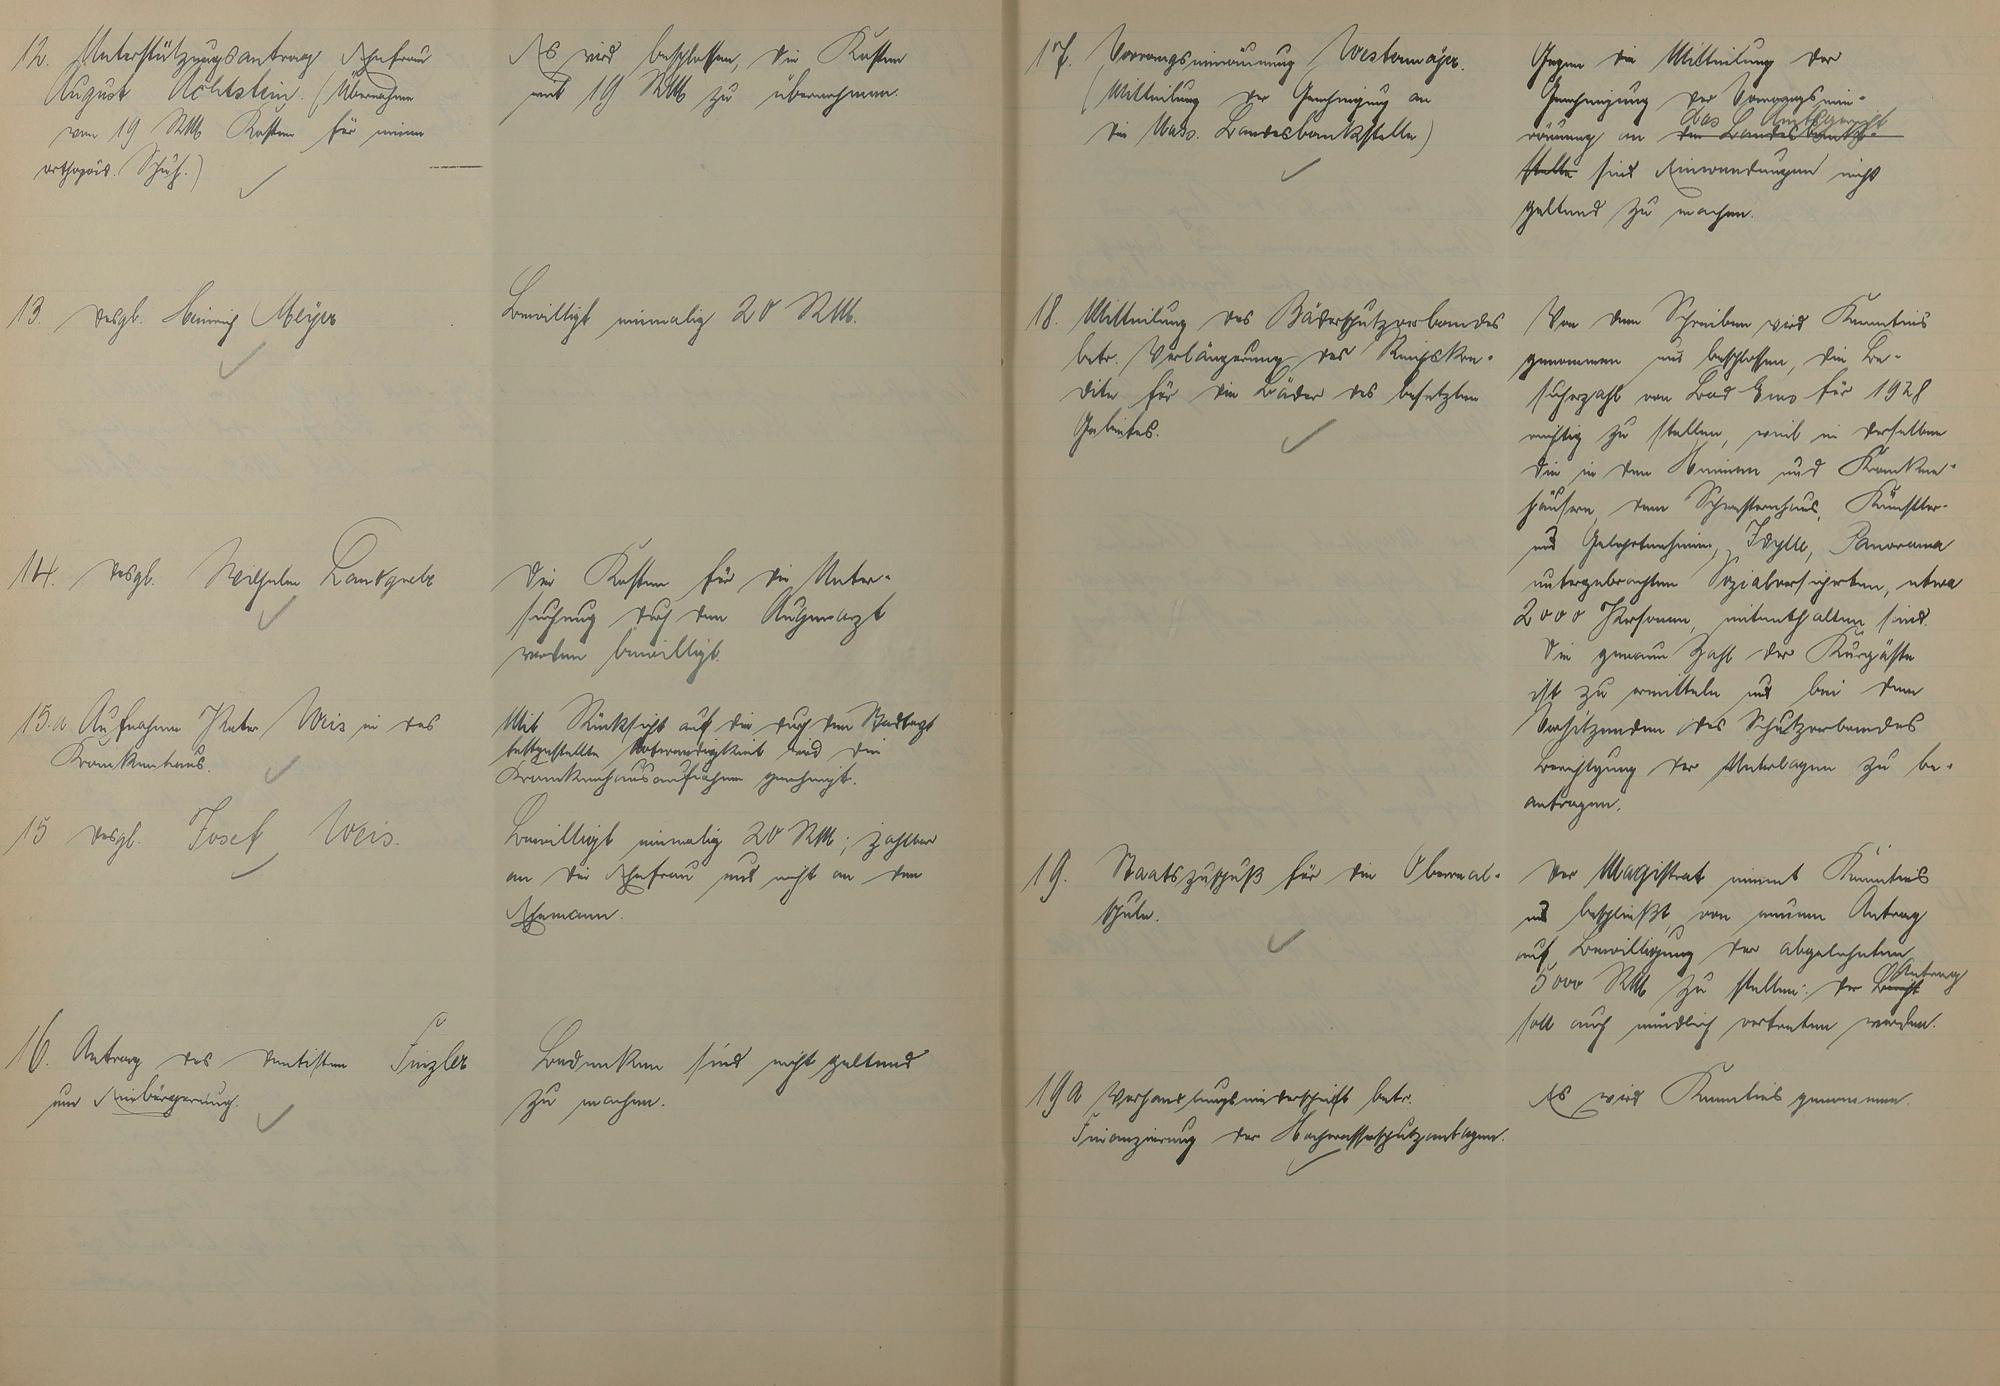 12. Unterstützungsantrag Ehefrau
August Achtstein. (Übernahme
von 19 RM Kosten für einen
orthopäd. Schuh.)
Es wird beschlossen, die Kosten
mit 19 RM zu übernehmen.
13. desgl. Heinrich Meyer
Bewilligt einmalig 20 RM.
14. desgl. Wilhelm Landgrebe
Die Kosten für die Unter-
suchung durch den Augenarzt
werden bewilligt.
15.a Aufnahme Peter Weis in das
Krankenhaus.
Mit Rücksicht auf die durch den Stadtarzt
festgestellte Notwendigkeit wird die
Krankenhausaufnahme genehmigt.
15 desgl. Josef Weis.
Bewilligt einmalig 20 RM; zahlbar
an die Ehefrau und nicht an den
Ehemann.
16. Antrag des Dentisten Finzler
um Einbürgerung.
Bedenken sind nicht geltend
zu machen.
17. Vorrangseinräumung Westermayer.
(Mitteilung der Genehmigung an
die Nass. Landesbankstelle)
Gegen die Mitteilung der
Genehmigung der Vorrangsein-
räumung an die Landesbank-
das Amtsgericht
stelle sind Einwendungen nicht
geltend zu machen.
18. Mitteilung des Bäderschutzverbandes
betr. Verlängerung des Reichskre-
dits für die Bäder des besetzten
Gebietes.
Von dem Schreiben wird Kenntnis
genommen und beschlossen, die Be-
sucherzahl von Bad Ems für 1928
richtig zu stellen, weil in derselben
die in den Heimen und Kranken-
häusern, dem Schwesternhaus, Künstler-
und Gelehrtenheim, Idylle, Panorama
untergebrachten Sozialversicherten, etwa
2000 Personen, mitenthalten sind.
Die genaue Zahl der Kurgäste
ist zu ermitteln und bei dem
Vorsitzenden des Schutzverbandes
Berichtigung der Unterlagen zu be-
antragen.
19. Staatszuschuß für die Oberreal-
schule.
Der Magistrat nimmt Kenntnis
und beschließt, von neuem Antrag
auf Bewilligung der abgelehnten
5000 RM zu stellen; der Bericht
Antrag
soll auch mündlich vertreten werden.
19a Verhandlungsniederschrift betr.
Finanzierung der Hochwasserschutzanlagen.
Es wird Kenntnis genommen.